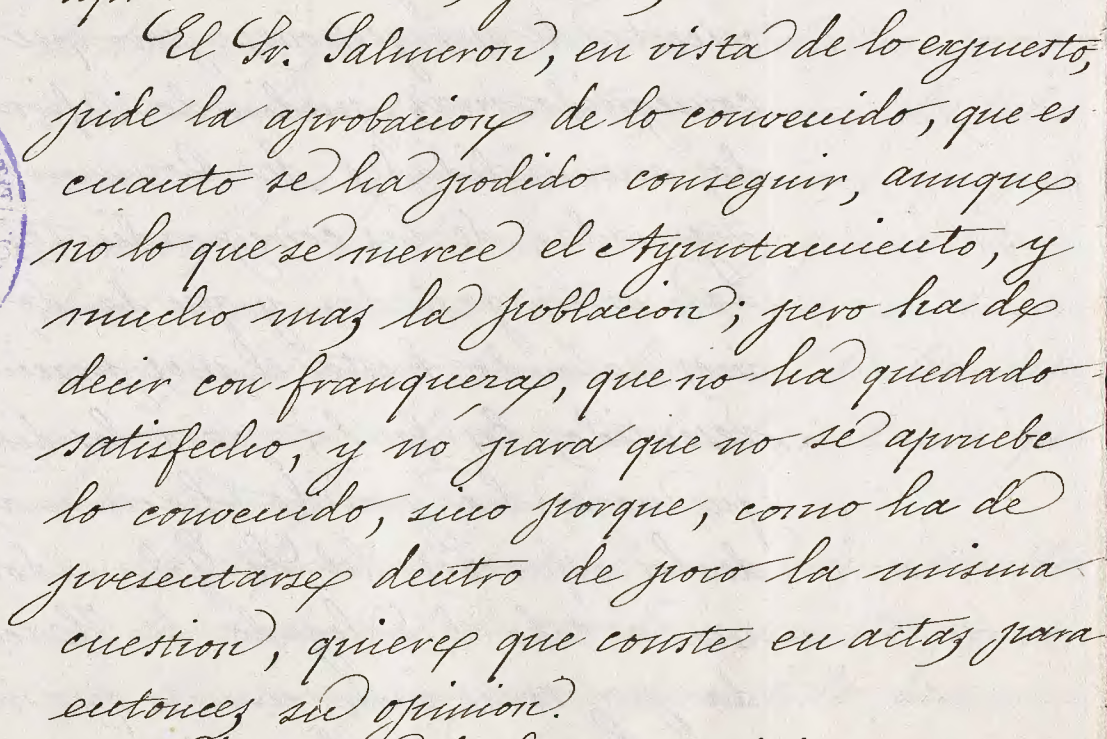 El Sr. Salmeron, en vista de lo expuesto,
pide la aprobacion de lo convenido, que es
cuanto se ha podido conseguir, aunque
no lo que se merece el Ayuntamiento, y
mucho mas la poblacion; pero ha de
decir con franqueza, que no ha quedado
satisfecho, y no para que no se apruebe
lo convenido, sino porque, como ha de
presentarse dentro de poco la misma
cuestion, quiere que conste en actas para
entonces su opinion.